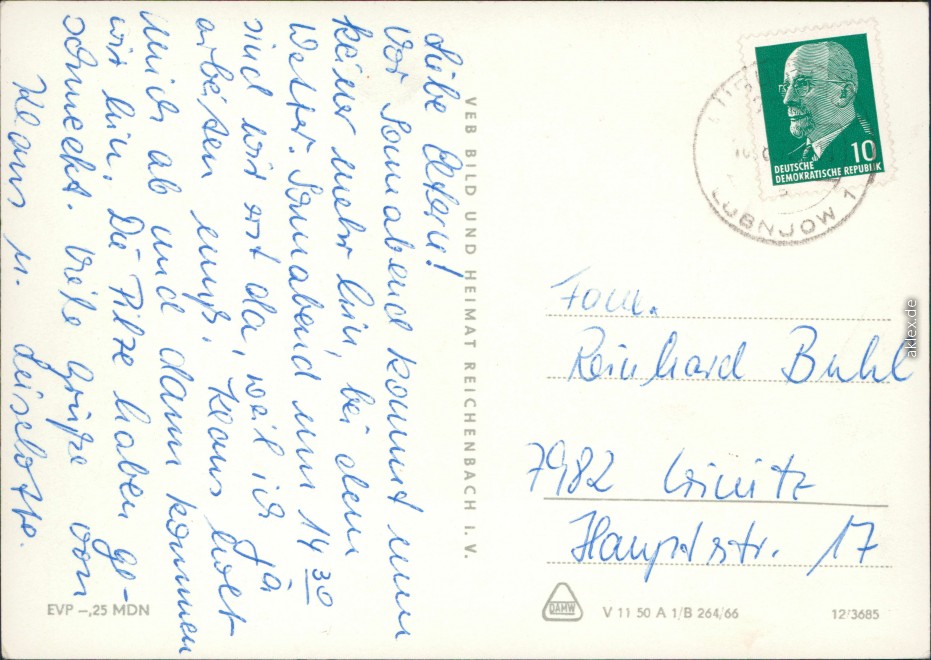 Liebe Eltern!
Vor Sonnabend kommt nun
keiner mehr hin, bei dem
Wetter. Sonnabend um 14 30
sind wir erst da, weil ich ja
arbeiten muß. Klaus holt
mich ab und dann kommen
wir hin. Die Pilze haben ge-
schmeckt. Viele Grüße von
Klaus u. Liselotte.
VEB BILD UND HEIMAT REICHENBACH I. V.
10
DEUTSCHE
DEMOKRATISCHE REPUBLIK
LUBNJOW 1
Fam.
Reinhard Buhl
7982
Hauptstr. 17
EVP –,25 MDN
DAMW
V 11 50 A 1/B 264/66
12/3685
aklex.de